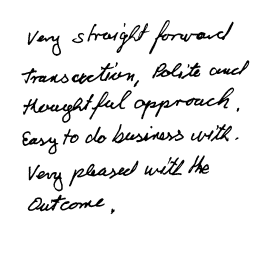 Very straight forward
Transaction, Polite and
thoughtful approach.
Easy to do business with.
Very pleased with the
Outcome.